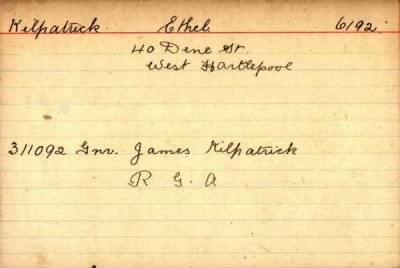 Kilpatrick Ethel 6192.
40 Dene St.
West Hartlepool
311092 Gnr. James Kilpatrick
R G A